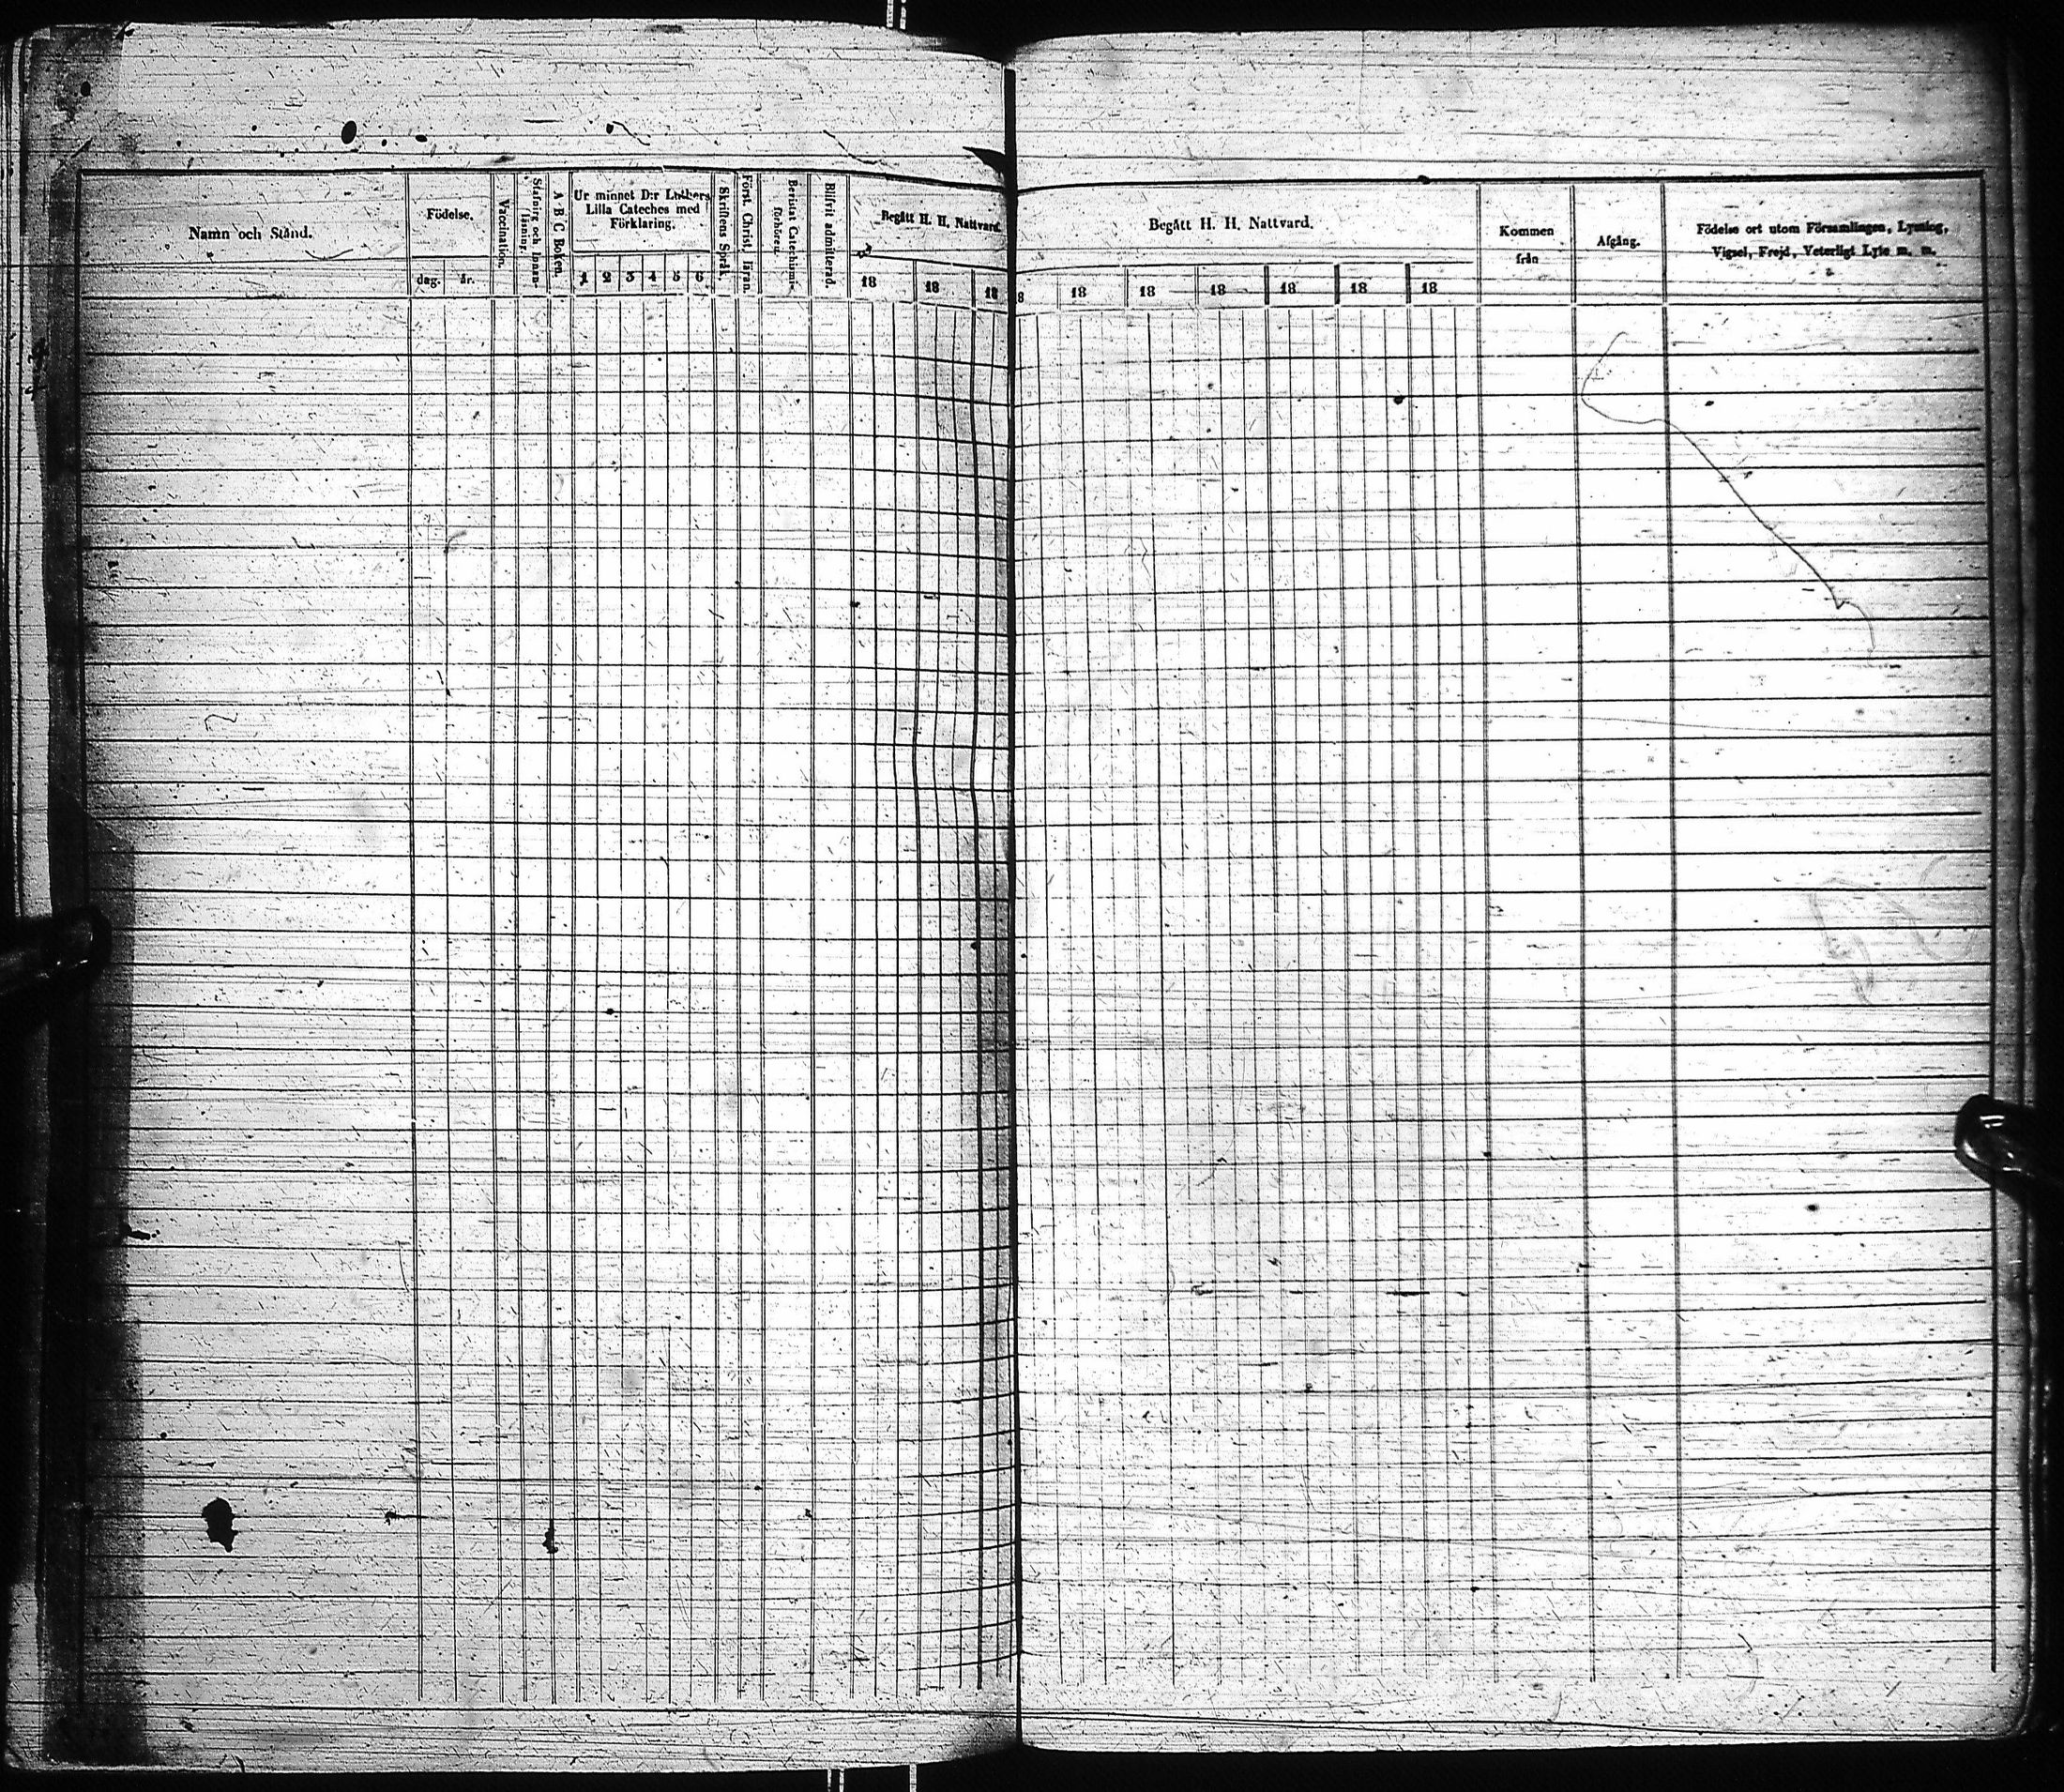 Namn och Stånd.
Födelse.
dag.
år.
Vaccination.
Stafning och Innan-
läsning.
A B C Boken.
Ur minnet D:r Luthers
Lilla Cateches med
Förklaring.
1 2 3 4 5 6
Skriftens Språk.
Först. Christ. läran.
Bevistat Catechismi-
förhören.
Blifvit admitterad.
Begått H. H. Nattvard.
18 18 18
Begått H. H. Nattvard.
8 18 18 18 18 18 18
Kommen
från
Afgång.
Födelse ort utom Församlingen, Lysning,
Vigsel, Frejd, Veterligt Lyte m. m.